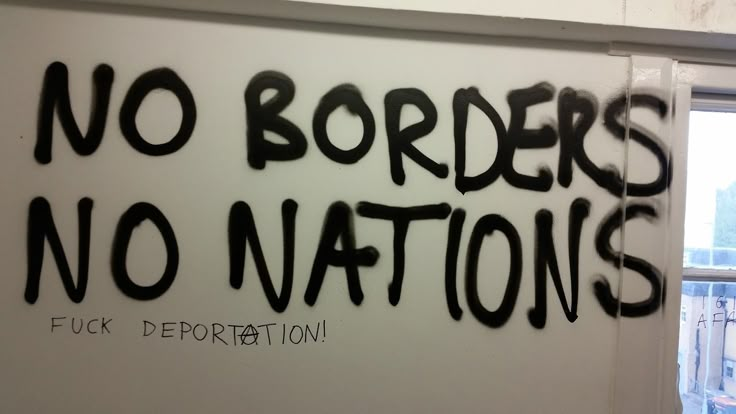 NO BORDERS
NO NATIONS
FUCK DEPORTATION!